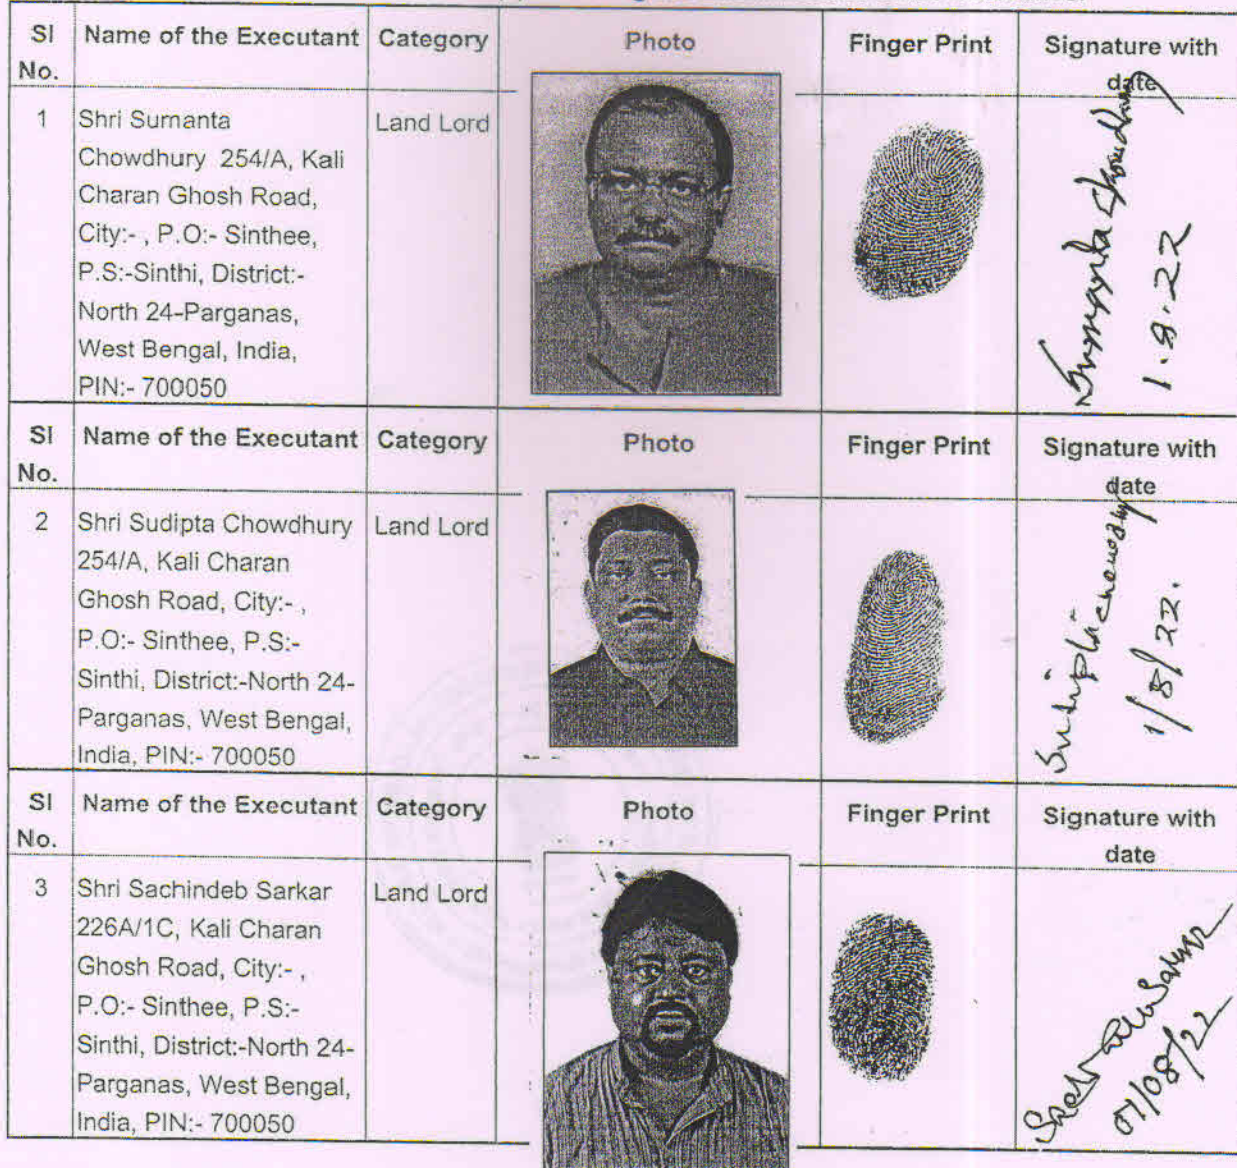 Sl No. Name of the Executant Category Photo Finger Print Signature with date
1 Shri Sumanta Land Lord
Chowdhury 254/A, Kali
Charan Ghosh Road,
City:- , P.O:- Sinthee,
P.S:-Sinthi, District:-
North 24-Parganas,
West Bengal, India,
PIN:- 700050
Sumanta Chowdhury
1.8.22
Sl No. Name of the Executant Category Photo Finger Print Signature with date
2 Shri Sudipta Chowdhury Land Lord
254/A, Kali Charan
Ghosh Road, City:- ,
P.O:- Sinthee, P.S:-
Sinthi, District:-North 24-
Parganas, West Bengal,
India, PIN:- 700050
Sudipta Chowdhury
1/8/22.
Sl No. Name of the Executant Category Photo Finger Print Signature with date
3 Shri Sachindeb Sarkar Land Lord
226A/1C, Kali Charan
Ghosh Road, City:- ,
P.O:- Sinthee, P.S:-
Sinthi, District:-North 24-
Parganas, West Bengal,
India, PIN:- 700050
01/08/22